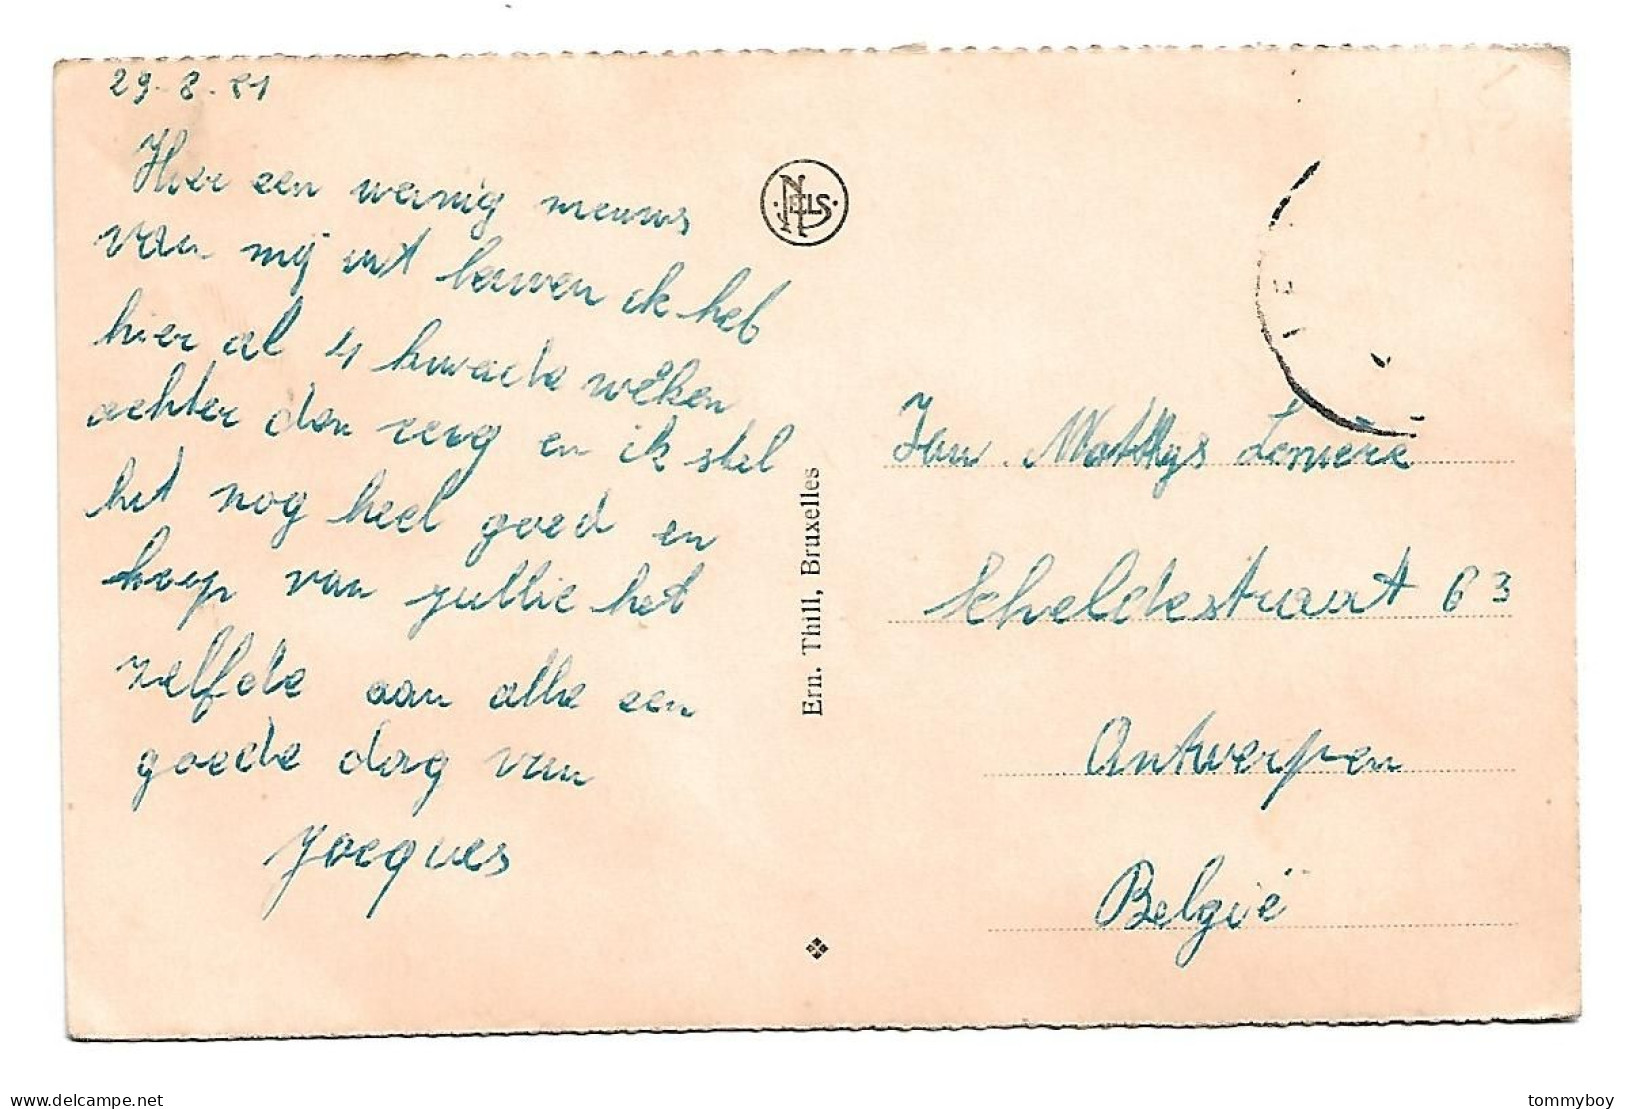 29-8-51
Hier een wenig nieuws
van mij uit leuven ik heb
hier al 4 kwade weken
achter den reeg en ik stel
het nog heel goed en
hoop van jullie het
zelfde aan alle een
goede dag van
Jacques
NELS
Ern. Thill, Bruxelles
Jan Matthys
Scheldestraat 63
Antwerpen
België
delcampe.net
tommyboy